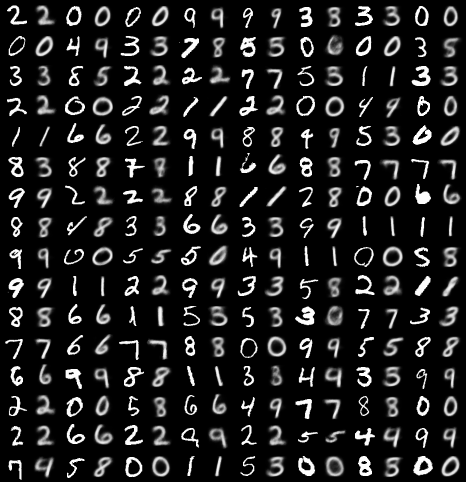 2 2 0 0 0 0 9 9 9 9 3 8 3 3 0 0
0 0 4 9 3 3 7 8 5 5 0 6 0 0 3 5
3 3 8 5 2 2 2 2 7 7 5 3 1 1 3 3
2 2 0 0 2 2 1 1 2 2 0 0 4 9 0 0
1 1 6 6 2 2 9 9 8 8 4 9 5 3 0 0
8 3 8 8 7 8 1 1 6 6 8 8 7 7 7 7
9 9 2 2 2 2 8 8 1 1 2 8 0 0 6 6
8 8 8 3 3 6 6 3 3 9 9 1 1 1 1
9 9 0 0 5 5 5 0 4 9 1 1 0 0 5 8
9 9 1 1 2 2 9 9 3 3 5 8 2 2 1 1
8 8 6 6 1 1 5 3 5 3 3 0 7 7 3 3
7 7 6 6 7 7 8 8 0 0 9 9 5 5 8 8
6 6 9 9 8 8 1 1 3 3 4 9 3 3 9 9
2 2 0 0 5 8 6 6 4 9 7 7 8 8 0 0
2 2 6 6 2 2 9 9 2 2 5 5 4 4 9 9
7 4 5 8 0 0 1 1 5 3 0 0 8 5 0 0